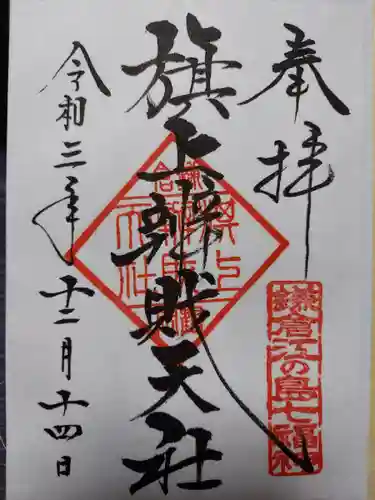 奉拝
鎌倉江の島七福神
旗上辨財天社
令和三年十二月十四日